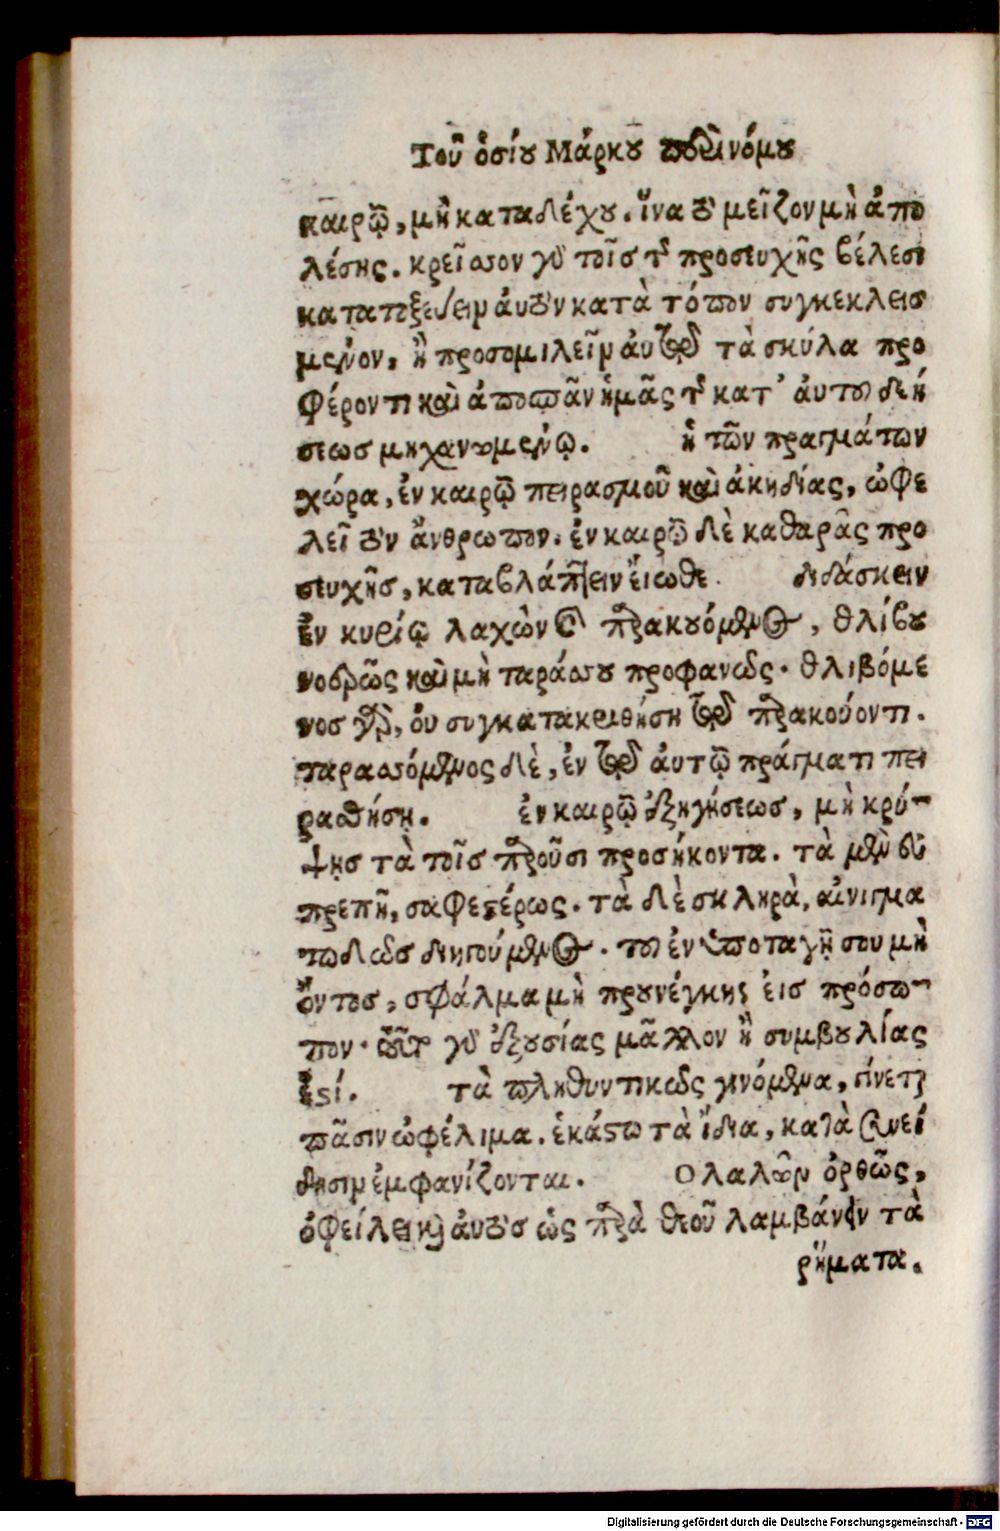 Τοῦ ὁσίου Μάρκου περὶ νόμου
καιρῷ, μὴ καταδέχου. ἵνα τὸ μεῖζον μὴ ἀπο
λέσῃς. κρεῖσσον γὰρ τοῖς τῆς προσευχῆς βέλεσι
κατατοξεύειν αὐτὸν κατὰ τόπον συγκεκλεισ
μένον, ἢ προσομιλεῖν αὐτῷ τὰ σκύλα προ
φέροντι καὶ ἀποσπᾶν ἡμᾶς τῆς κατ' αὐτοῦ δεή
σεως μηχανωμένῳ. ἡ τῶν πραγμάτων
χώρα, ἐν καιρῷ πειρασμοῦ καὶ ἀκηδίας, ὠφε
λεῖ τὸν ἄνθρωπον. ἐν καιρῷ δὲ καθαρᾶς προ
σευχῆς, καταβλάπτειν εἴωθε. διδάσκειν
ἐν κυρίῳ λαχὼν καὶ παρακουόμενος, θλίβου
νοερῶς καὶ μὴ ταράσσου προφανῶς. θλιβόμε
νος γὰρ, οὐ συγκατακριθήσῃ τῷ παρακούοντι.
ταρασσόμενος δὲ, ἐν τῷ αὐτῷ πράγματι πει
ρασθήσῃ. ἐν καιρῷ ἐξηγήσεως, μὴ κρύ-
ψῃς τὰ τοῖς παροῦσι προσήκοντα. τὰ μὲν εὐ
πρεπῆ, σαφεστέρως. τὰ δὲ σκληρὰ, αἰνιγμα
τωδῶς διηγούμενος. τοῦ ἐν ὑποταγῇ σου μὴ
ὄντος, σφάλμα μὴ προενέγκῃς εἰς πρόσω-
πον. τοῦτο γὰρ ἐξουσίας μᾶλλον ἢ συμβουλίας
ἐστί. τὰ πληθυντικῶς γινόμενα, γίνεται
πᾶσιν ὠφέλιμα. ἑκάστῳ τὰ ἴδια, κατὰ συνεί
δησιν ἐμφανίζονται. Ο λαλῶν ὀρθῶς,
ὀφείλει καὶ αὐτὸς ὡς παρὰ θεοῦ λαμβάνειν τὰ
ῥήματα.
Digitalisierung gefördert durch die Deutsche Forschungsgemeinschaft - DFG